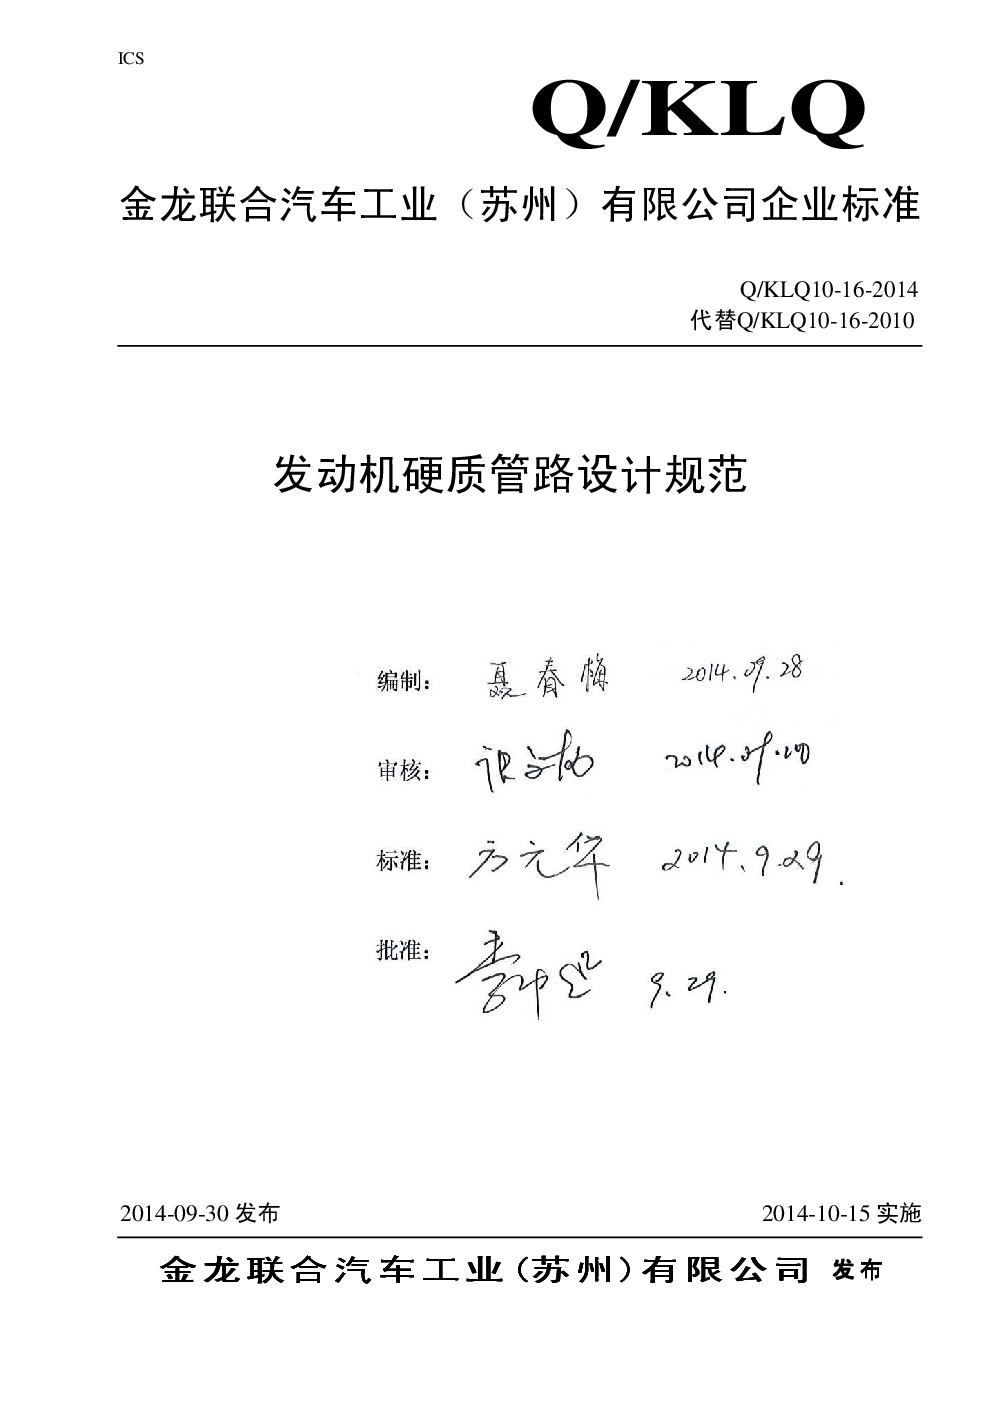 ICS
Q/KLQ
金龙联合汽车工业（苏州）有限公司企业标准
Q/KLQ10-16-2014
代替Q/KLQ10-16-2010
发动机硬质管路设计规范
编制： 聂春梅 2014.09.28
审核： 2014.09.
标准： 方元华 2014.9.29.
批准： 9.29.
2014-09-30 发布 2014-10-15 实施
金龙联合汽车工业（苏州）有限公司 发布